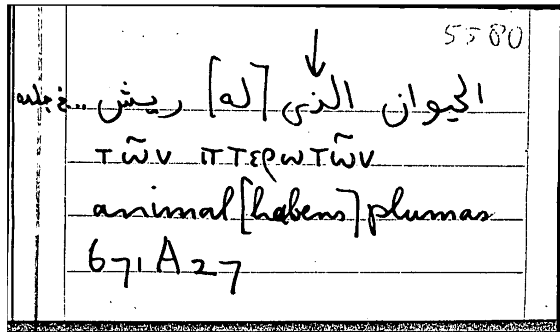 5580
الحيوان الذى [له] ريش .. فى جلده
τῶν πτερωτῶν
animal [habens] plumas
671 A 27